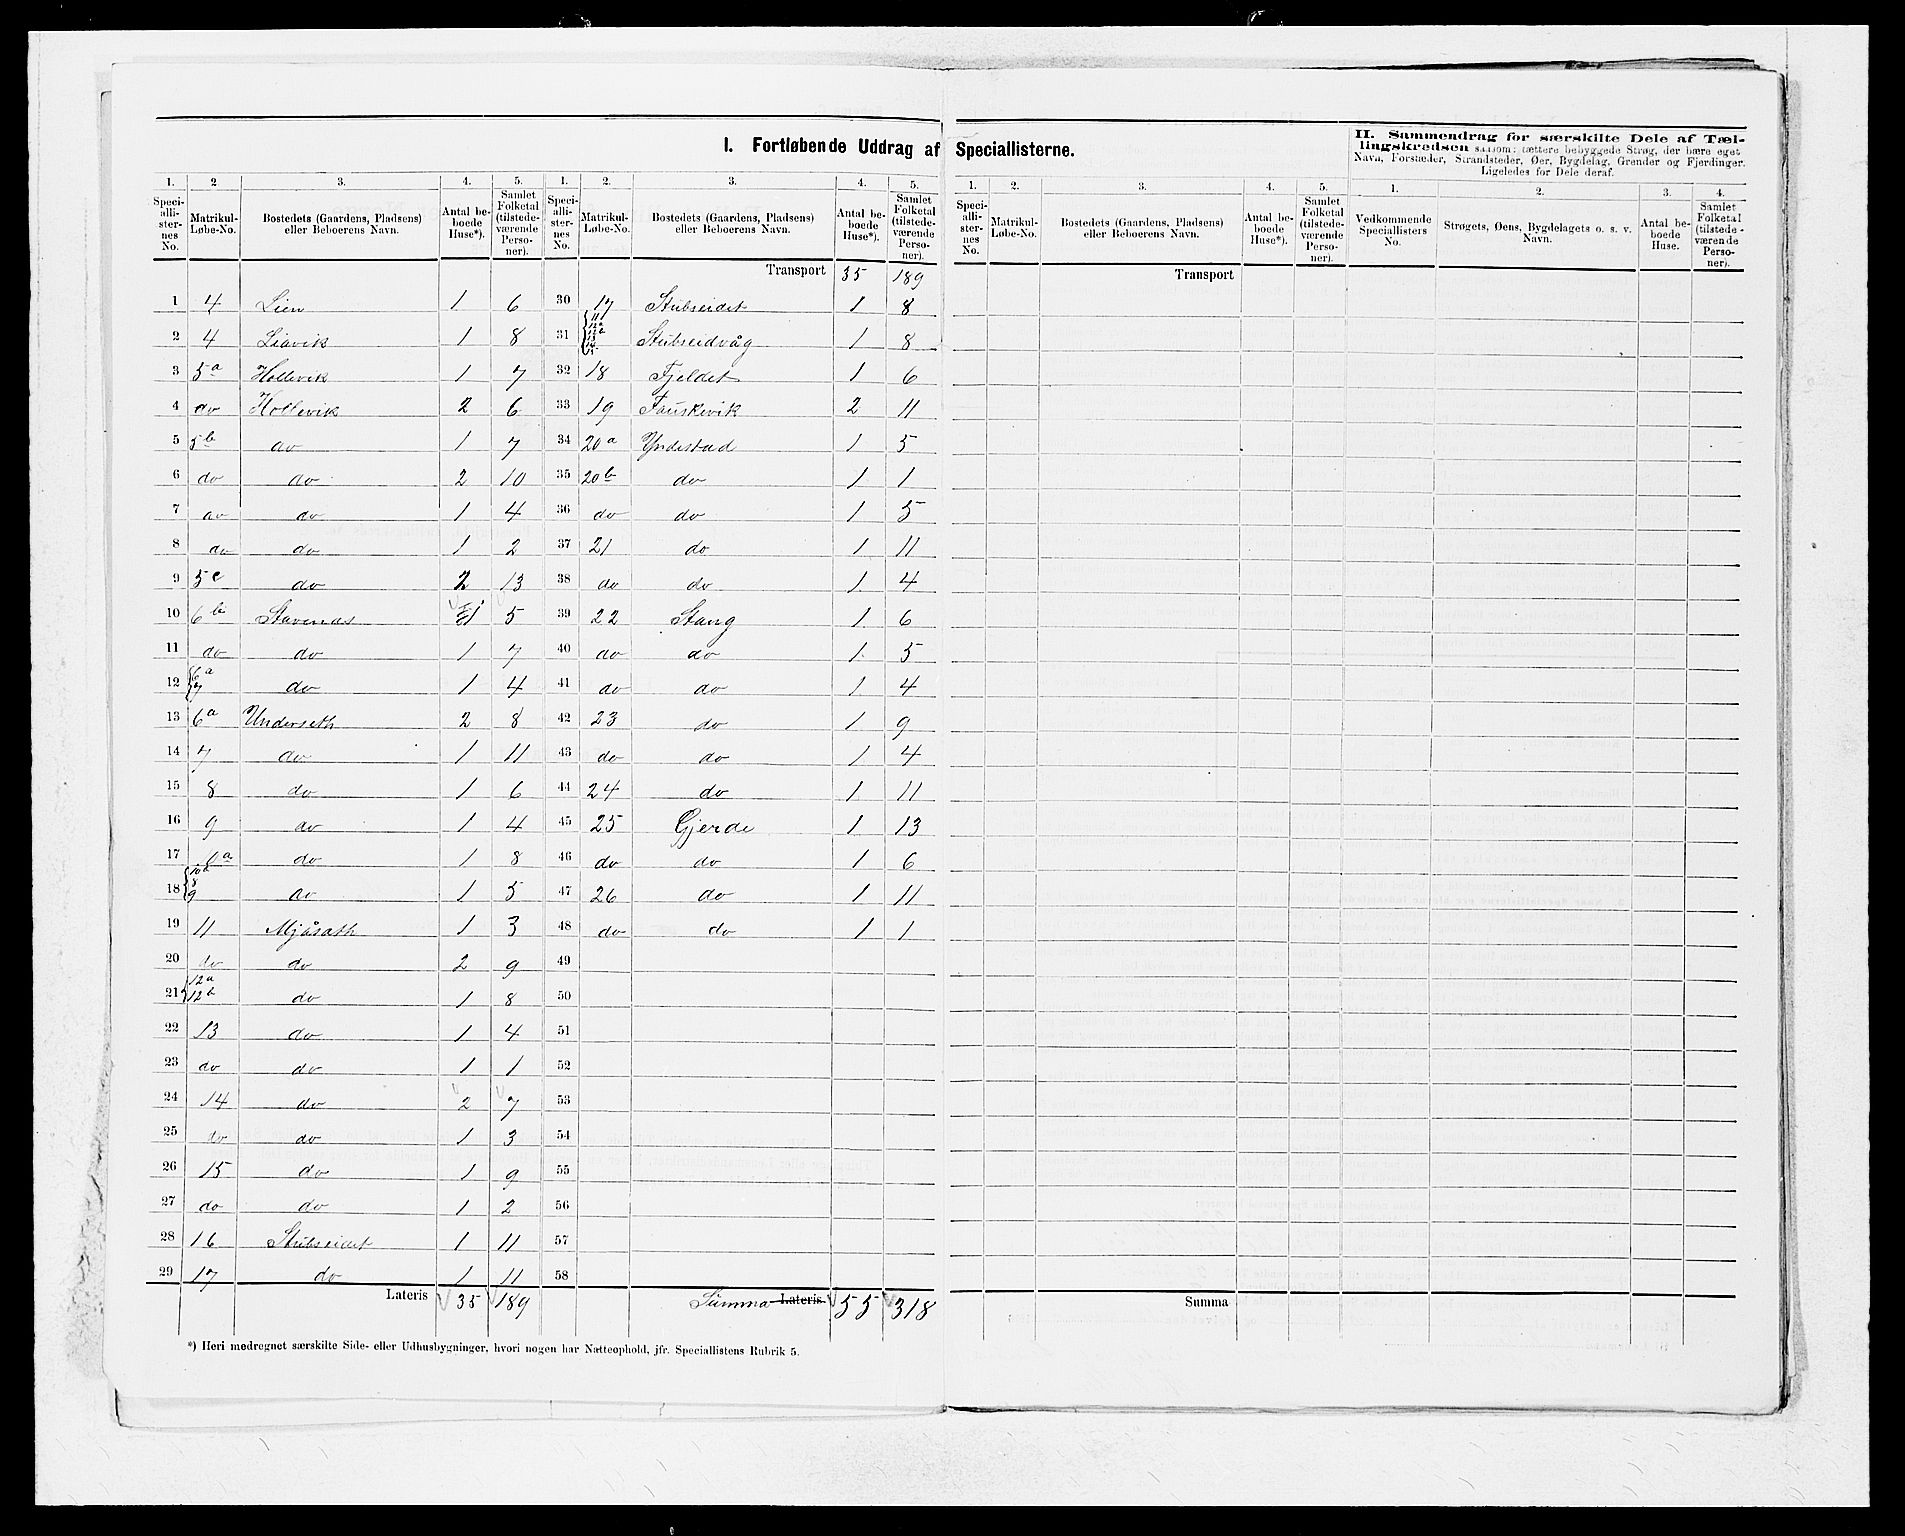 I. Fortløbende Uddrag af Speciallisterne.
II. Sammendrag for særskilte Dele af Tæl-
lingskredsen saasom: tættere bebyggede Strøg, der bære eget
Navn, Forstæder, Strandsteder, Øer, Bygdelag, Grender og Fjerdinger.
Ligeledes for Dele deraf.
1. 2 3. 4. 5. 1. 2. 3. 4. 5. 1. 2. 3. 4. 5. 1. 2. 3. 4.
Speci-alli-ster-nes No. Matrikul-Løbe-No. Bostedets (Gaardens, Pladsens) eller Beboerens Navn. Antal be-boede Huse*). Samlet Folketal (tilstede-værende Perso-ner).
Speci-alli-ster-nes No. Matrikul-Løbe-No. Bostedets (Gaardens, Pladsens) eller Beboerens Navn. Antal be-boede Huse*). Samlet Folketal (tilstede-værende Perso-ner).
Speci-alli-ster-nes No. Matrikul-Løbe-No. Bostedets (Gaardens, Pladsens) eller Beboerens Navn. Antal be-boede Huse*). Samlet Folketal (tilstede-værende Perso-ner).
Vedkommende Speciallisters No. Strøgets, Øens, Bygdelagets o. s. v. Navn. Antal be-boede Huse. Samlet Folketal (tilstede-værende Perso-ner).
Transport 35 189 Transport
1 4 Lien 1 6 30 17 Stubseidet 1 8
2 4 Liavik 1 8 31 11 12a 12b 13 14 15 Stubseidvåg 1 8
3 5a Hollevik 1 7 32 18 Fjeldet 1 6
4 do Hollevik 2 6 33 19 Fauskevik 2 11
5 5b do 1 7 34 20a Yndestad 1 5
6 do do 2 10 35 20b do 1 1
7 do do 1 4 36 do do 1 5
8 do do 1 2 37 21 do 1 11
9 5c do 2 13 38 do do 1 4
10 6b Stavenas 1 5 39 22 Stang 1 6
11 do do 1 7 40 do do 1 5
12 6a 7 do 1 4 41 do do 1 4
13 6a Underseth 2 8 42 23 do 1 9
14 7 do 1 11 43 do do 1 4
15 8 do 1 6 44 24 do 1 11
16 9 do 1 4 45 25 Gjerde 1 13
17 do 1 8 46 do do 1 6
18 8 9 do 1 5 47 26 do 1 11
19 11 Mjåsath 1 3 48 do do 1 1
20 do do 2 9 49
21 12a 12b do 1 8 50
22 13 do 1 4 51
23 do do 1 1 52
24 14 do 2 7 53
25 do do 1 3 54
26 15 do 1 9 55
27 do do 1 2 56
28 16 Stubseidet 1 11 57
29 17 do 1 11 58
Lateris 35 189 Summa Lateris 55 318 Summa
*) Heri medregnet særskilte Side- eller Udhusbygninger, hvori nogen har Natteophold, jfr. Speciallistens Rubrik 5.